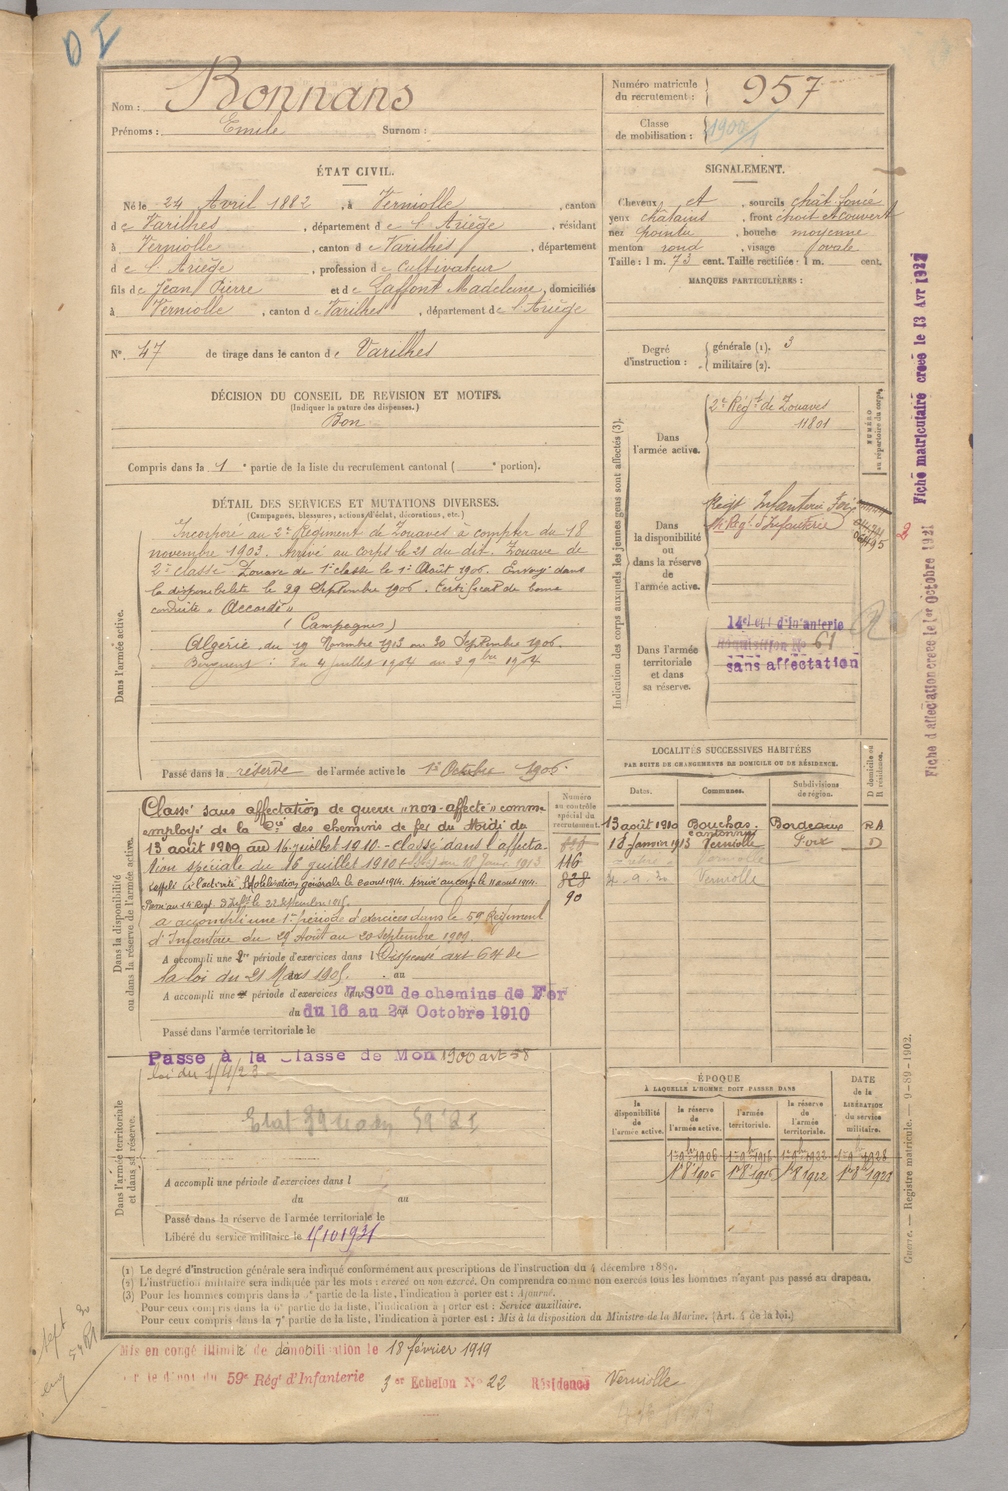 Nom : Bonnans
Prénoms : Emile Surnom :
Numéro matricule du recrutement : 957
Classe de mobilisation : 1900
ÉTAT CIVIL.
Né le 24 Avril 1882, à Verniolle, canton
de Varilhes, département de l'Ariège, résidant
à Verniolle, canton de Varilhes, département
de l'Ariège, profession de Cultivateur
fils de Jean Pierre et de Laffont Madeleine, domiciliés
à Verniolle, canton de Varilhes, département de l'Ariège
N° 47 de tirage dans le canton de Varilhes
SIGNALEMENT.
Cheveux et, sourcils chât. foncé
yeux châtains, front étroit et couvert
nez pointu, bouche moyenne
menton rond, visage ovale
Taille : 1 m. 73 cent. Taille rectifiée : 1 m. cent.
MARQUES PARTICULIÈRES :
Degré d'instruction : générale (1). 3
militaire (2).
DÉCISION DU CONSEIL DE REVISION ET MOTIFS.
(Indiquer la nature des dispenses.)
Bon
Compris dans la 1e partie de la liste du recrutement cantonal ( e portion).
DÉTAIL DES SERVICES ET MUTATIONS DIVERSES.
(Campagnes, blessures, actions d'éclat, décorations, etc.)
Dans l'armée active.
Incorporé au 2e Régiment de Zouaves à compter du 18
novembre 1903. Arrivé au corps le 21 du dit. Zouave de
2e classe. Zouave de 1e classe le 1er Août 1906. Envoyé dans
la disponibilité le 29 Septembre 1906. Certificat de bonne
conduite « Accordé »
(Campagnes)
Algérie du 19 Novembre 1903 au 30 Septembre 1906.
Passé dans la réserve de l'armée active le 1er Octobre 1906.
Indication des corps auxquels les jeunes gens sont affectés (3).
NUMÉRO au répertoire du corps.
Dans l'armée active.
2e Régt de Zouaves
11801
Dans la disponibilité ou dans la réserve de l'armée active.
Régt Infanterie Foix
14e Rég. d'Infanterie
Dans l'armée territoriale et dans sa réserve.
14e d'Infanterie
Réquisition No 61
sans affectation
Dans la disponibilité ou dans la réserve de l'armée active.
Numéro au contrôle spécial du recrutement.
Classé sans affectation de guerre « non-affecté » comme
employé de la Cie des chemins de fer du Midi du
13 août 1909 au 16 juillet 1910. - classé dans l'affecta-
tion spéciale du 16 juillet 1910
Rappelé à l'activité. Mobilisation générale le août 1914. Arrivé au corps le 11 août 1914.
Passé au 14e Régt d'Inf. le 22 septembre 1915.
116
828
90
A accompli une 1re période d'exercices dans le 59e Régiment
d'Infanterie du 29 Août au 20 Septembre 1909.
A accompli une 2e période d'exercices dans l Dispensé art 64 de
la loi du 21 Mars 1905. au
A accompli une période d'exercices dans 7e Son de chemins de Fer
du 16 au 27 Octobre 1910
Passé dans l'armée territoriale le
Passé à la Classe de Mon 1900 art 58
loi du 1/4/23
Dans l'armée territoriale et dans sa réserve.
A accompli une période d'exercices dans l
du au
Passé dans la réserve de l'armée territoriale le
Libéré du service militaire le 1/10 1931
LOCALITÉS SUCCESSIVES HABITÉES
PAR SUITE DE CHANGEMENTS DE DOMICILE OU DE RÉSIDENCE.
Dates. Communes. Subdivisions de région. D domicile ou R résidence.
13 août 1910 Bouchas. Bordeaux RA
cantonnier
18 Janvier 1913 Verniolle Foix D
Verniolle
Verniolle
ÉPOQUE
À LAQUELLE L'HOMME DOIT PASSER DANS
la disponibilité de l'armée active. la réserve de l'armée active. l'armée territoriale. la réserve de l'armée territoriale. DATE de la LIBÉRATION du service militaire.
1 9bre 1906 1 9bre 1916 1 9bre 1922 1 9bre 1928
1er 8bre 1906 1er 8 1916 1er 8 1922 1er 8bre 1928
(1) Le degré d'instruction générale sera indiqué conformément aux prescriptions de l'instruction du 4 décembre 1889.
(2) L'instruction militaire sera indiquée par les mots : exercé ou non exercé. On comprendra comme non exercés tous les hommes n'ayant pas passé au drapeau.
(3) Pour les hommes compris dans la partie de la liste, l'indication à porter est : Ajourné.
Pour ceux compris dans la 6e partie de la liste, l'indication à porter est : Service auxiliaire.
Pour ceux compris dans la 7e partie de la liste, l'indication à porter est : Mis à la disposition du Ministre de la Marine. (Art. 4 de la loi.)
Mis en congé illimité de démobilisation le 18 février 1919
59e Régt d'Infanterie 3er Echelon No 22 Résidence Verniolle
Fiche matriculaire créée le 13 Avr
Fiche d'affectation créée le 1er octobre 1921
2
Guerre. — Registre matricule. — 9-89-1902.